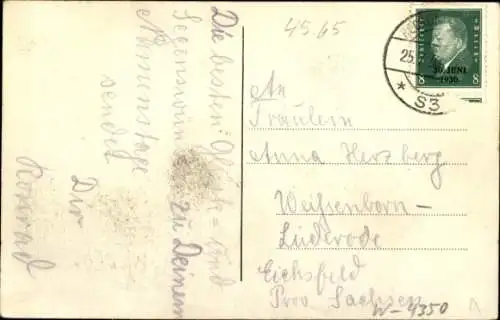 Die besten Glück- und
Segenswün zu Deinem
Namenstage
sendet
Dir
Konrad
45.65
An
Fräulein
Anna Herzberg
Weißenborn-
Lüderode
Eichsfeld
Prov Sachsen
W-4350
8 8
30. JUNI
1930
25.
* S3